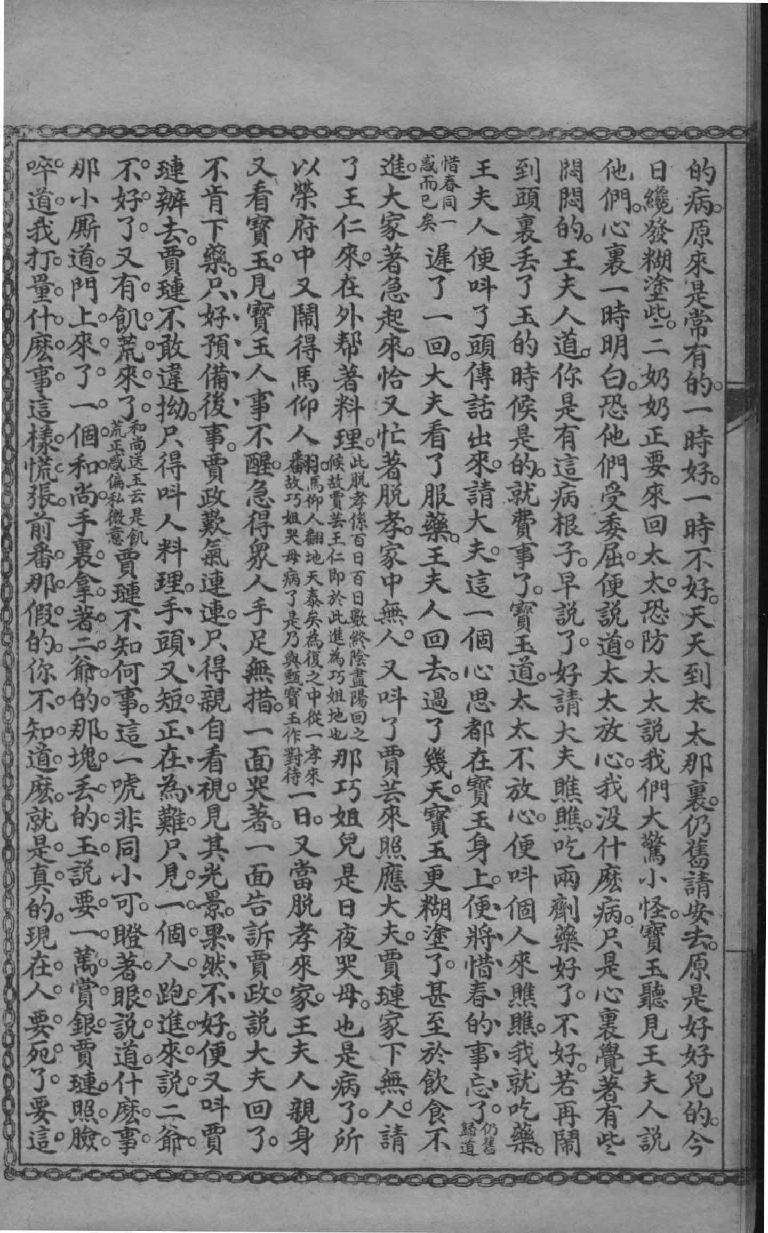 的病。原來是常有的。一時好。一時不好。天天到太太那裏。仍舊請安去。原是好好兒的。今
日纔發糊塗些。二奶奶正要來回太太。恐防太太說我們大驚小怪。寶玉聽見王夫人說
他們。心裏一時明白。恐他們受委屈。便說道。太太放心。我没什麽病。只是心裏覺著有些
悶悶的。王夫人道。你是有這病根子。早説了。好請大夫瞧瞧。吃兩劑藥好了。不好。若再鬧
到頭裏丢了玉的時候是的。就費事了。寶玉道。太太不放心。便呌個人來瞧瞧。我就吃藥。
王夫人便呌丫頭傳話出來。請大夫。這一個心思都在寶玉身上。便將惜春的事忘了。仍舊
歸道
惜春同一
惑而已矣遲了一回。大夫看了服藥。王夫人回去。過了幾天。寶玉更糊塗了。甚至於飲食不
進。大家著急起來。恰又忙著脱孝。家中無人。又呌了賈芸來照應大夫。賈璉家下無人。請
了王仁來。在外幇著料理。此脱孝係百日百日數終陰盡陽回之
候故賈芸王仁即於此進為巧姐地也那巧姐兒是日夜哭母。也是病了。所
以榮府中又鬧得馬仰人翻。馬仰人翻地天泰矣為復之中從一孝來
故巧姐哭母病了是乃與甄寶玉作對待一日。又當脱孝來家。王夫人親身
又看寶玉。見寶玉人事不醒。急得衆人手足無措。一面哭著。一面告訴賈政。説大夫回了。
不肯下藥。只好預備後事。賈政歎氣連連。只得親自看視。見其光景。果然不好。便又呌賈
璉辦去。賈璉不敢違拗。只得呌人料理。手頭又短。正在為難。只見一個人跑進來説。二爺
不好了。又有飢荒來了。和尚送玉云是飢
荒正感偏私微意賈璉不知何事。這一唬非同小可。瞪著眼説道。什麽事。
那小厮道。門上來了一個和尚。手裏拿著二爺的那塊丢的玉。説要一萬賞銀。賈璉照臉
啐道。我打量什麽事。這樣慌張。前番那假的。你不知道麽。就是真的。現在人要死了。要這